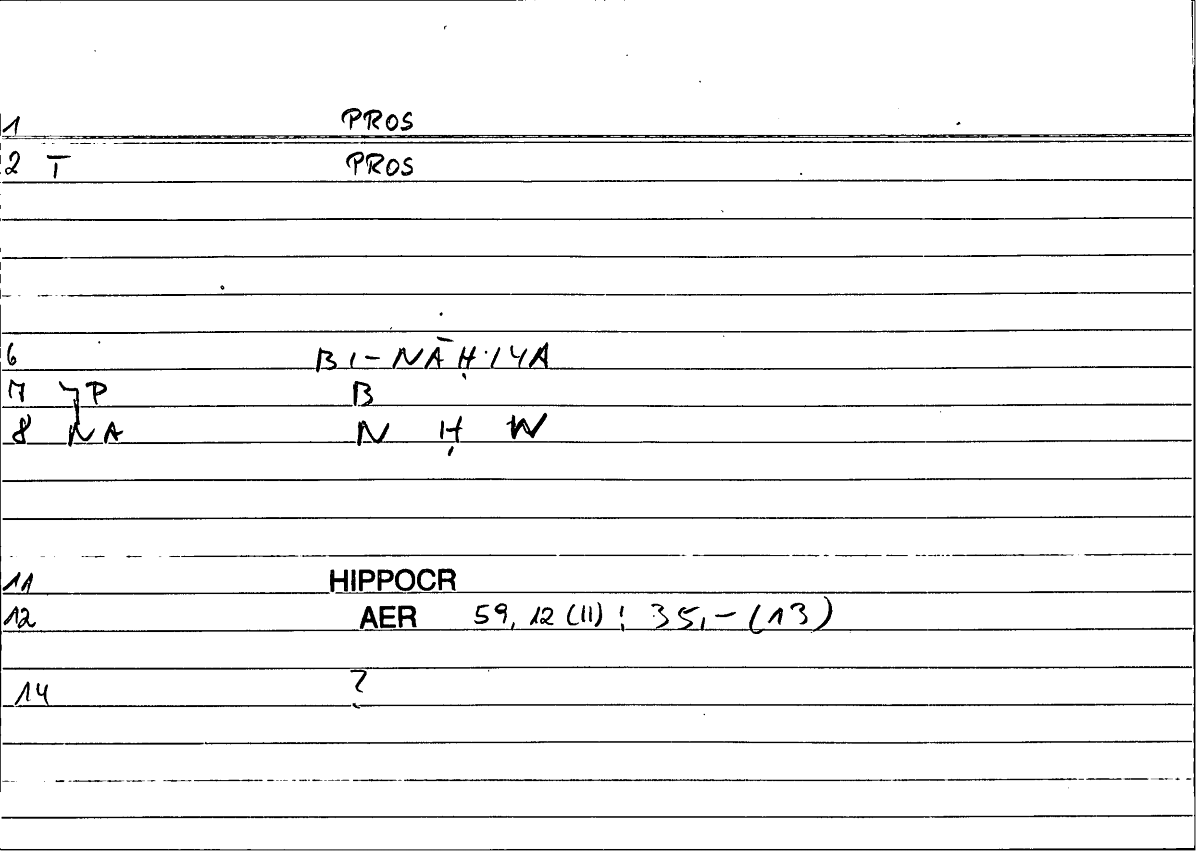 1 PROS
2 T PROS
6 BI-NĀḤIYA
7 P B
8 NA N Ḥ W
11 HIPPOCR
12 AER 59, 12 (11) ; 35,- (13)
14 ?